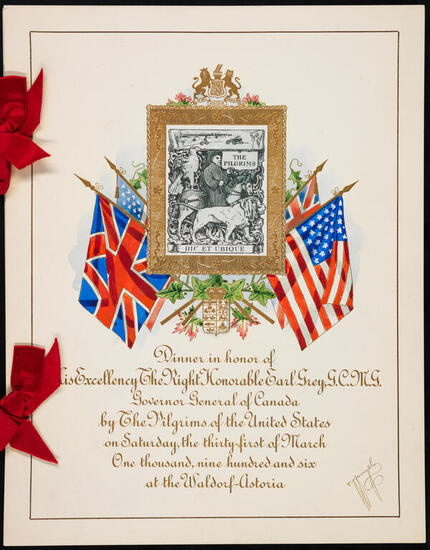 THE
PILGRIMS
HIC ET UBIQUE
Dinner in honor of
His Excellency The Right Honorable Earl Grey, G.C.M.G.
Governor General of Canada
by The Pilgrims of the United States
on Saturday, the thirty-first of March
One thousand, nine hundred and six
at the Waldorf-Astoria